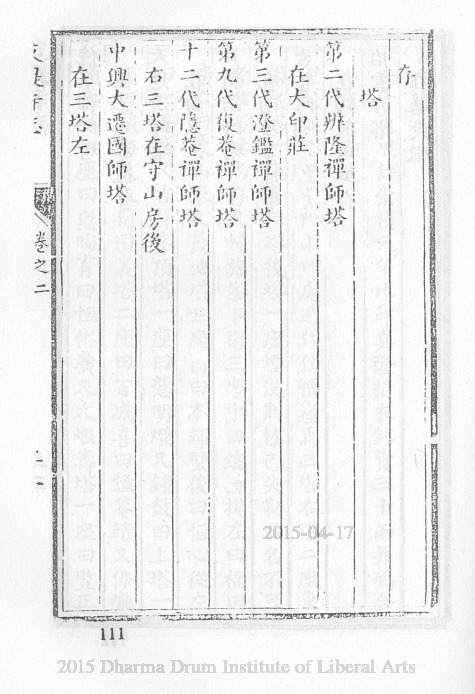 存
塔
第二代辨隆禪師塔
在大印莊
第三代澄鑑禪師塔
第九代復菴禪師塔
十二代隱菴禪師塔
右三塔在守山房後
中興大遷國師塔
在三塔左
卷之二
2015-04-17
111
2015 Dharma Drum Institute of Liberal Arts